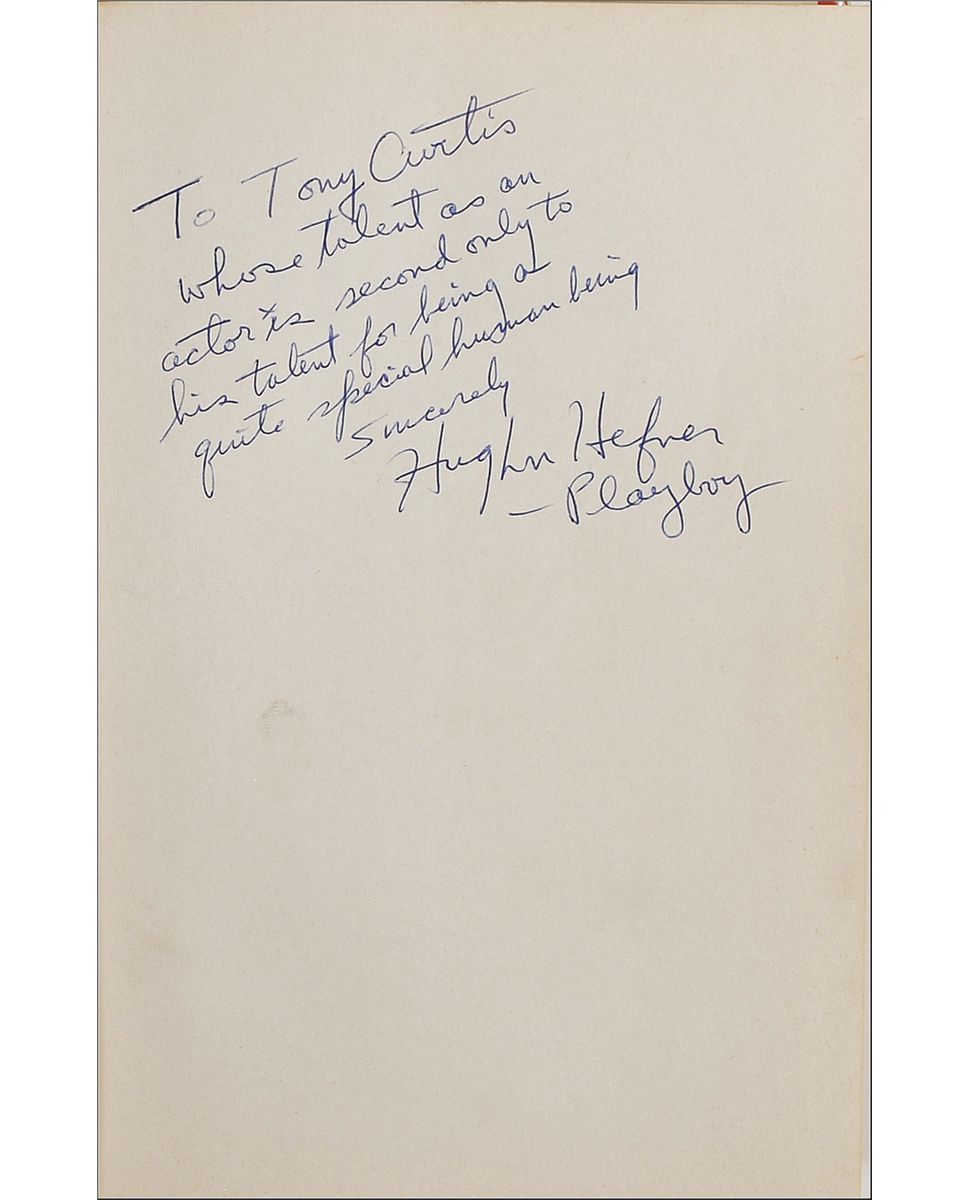 To Tony Curtis
whose talent as an
actor is second only to
his talent for being a
quite special human being
Sincerely
Hugh Hefner
– Playboy